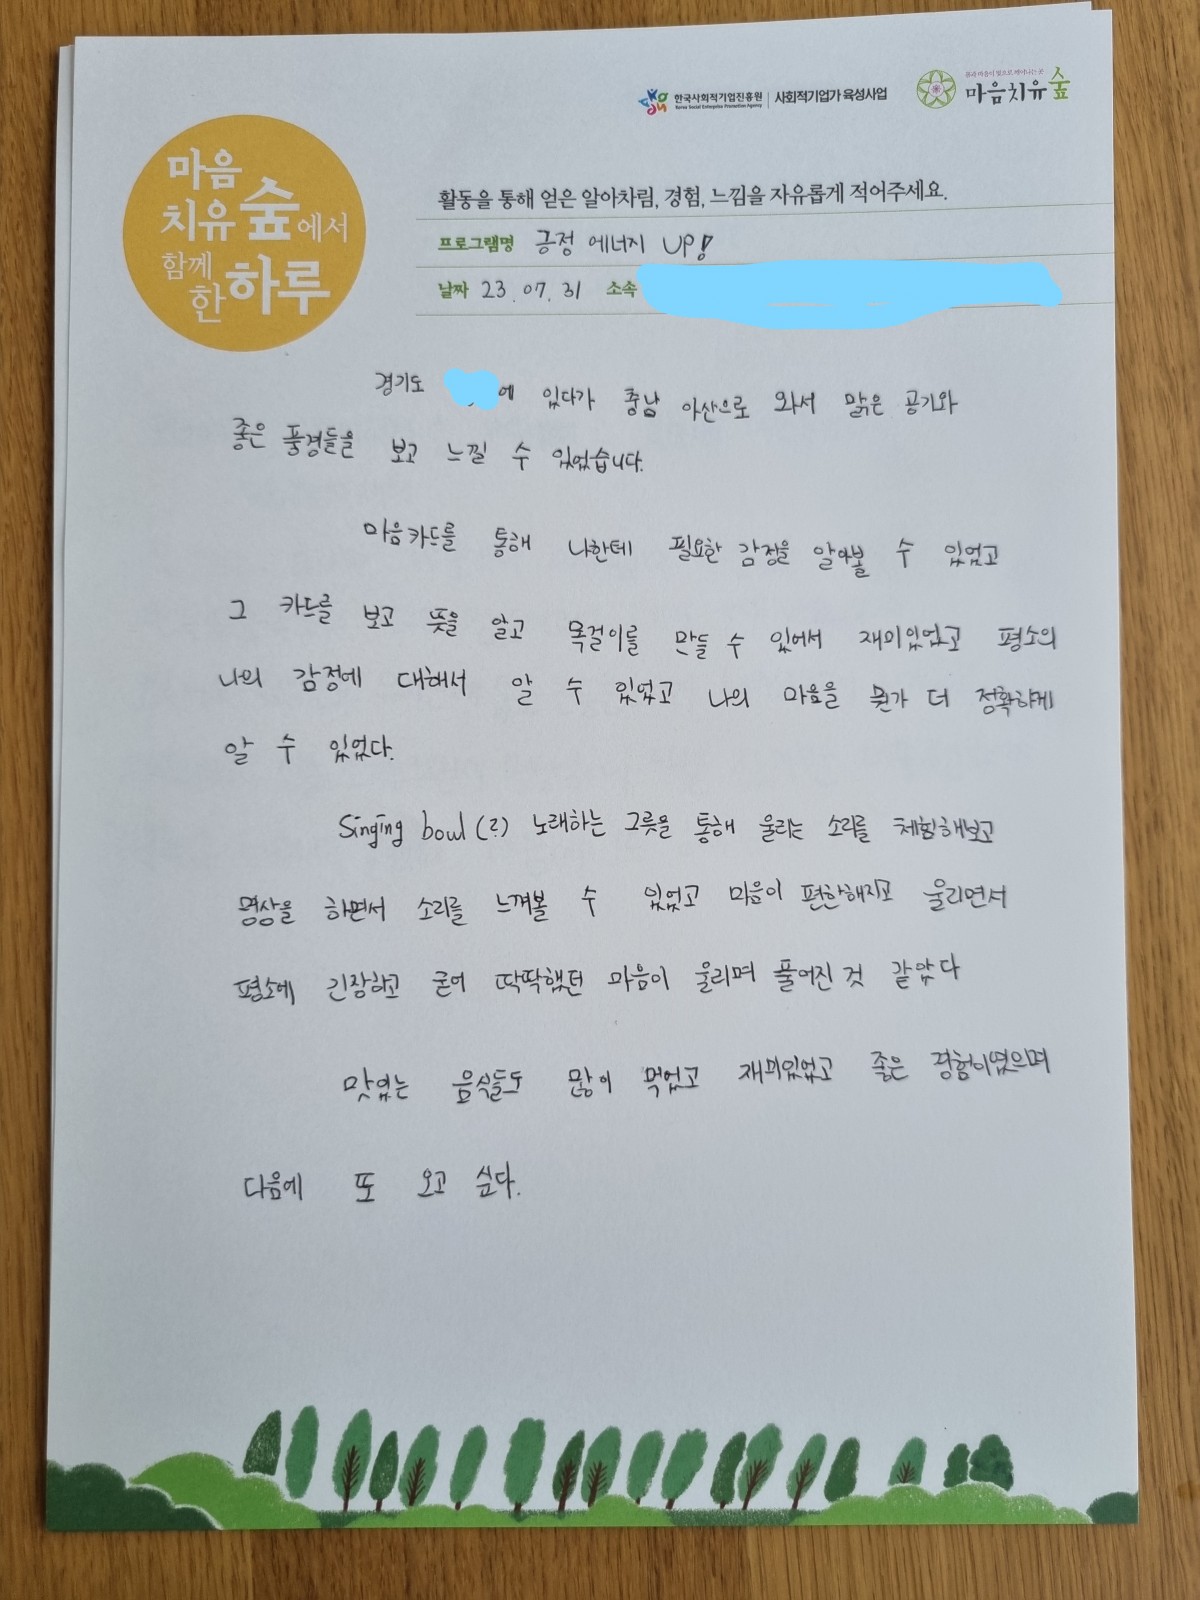 한국사회적기업진흥원 사회적기업가 육성사업
Korea Social Enterprise Promotion Agency
마음치유숲
마음
치유숲에서
함께
한 하루
활동을 통해 얻은 알아차림, 경험, 느낌을 자유롭게 적어주세요.
프로그램명 긍정 에너지 UP!
날짜 23.07.31 소속
경기도 에 있다가 충남 아산으로 와서 맑은 공기와
좋은 풍경들을 보고 느낄 수 있었습니다.
마음카드를 통해 나한테 필요한 감정을 알아볼 수 있었고
그 카드를 보고 뜻을 알고 목걸이를 만들 수 있어서 재미있었고 평소의
나의 감정에 대해서 알 수 있었고 나의 마음을 뭔가 더 정확하게
알 수 있었다.
Singing bowl (?) 노래하는 그릇을 통해 울리는 소리를 체험해보고
명상을 하면서 소리를 느껴볼 수 있었고 마음이 편안해지고 울리면서
평소에 긴장하고 굳어 딱딱했던 마음이 울리며 풀어진 것 같았다
맛있는 음식들도 많이 먹었고 재미있었고 좋은 경험이였으며
다음에 또 오고 싶다.